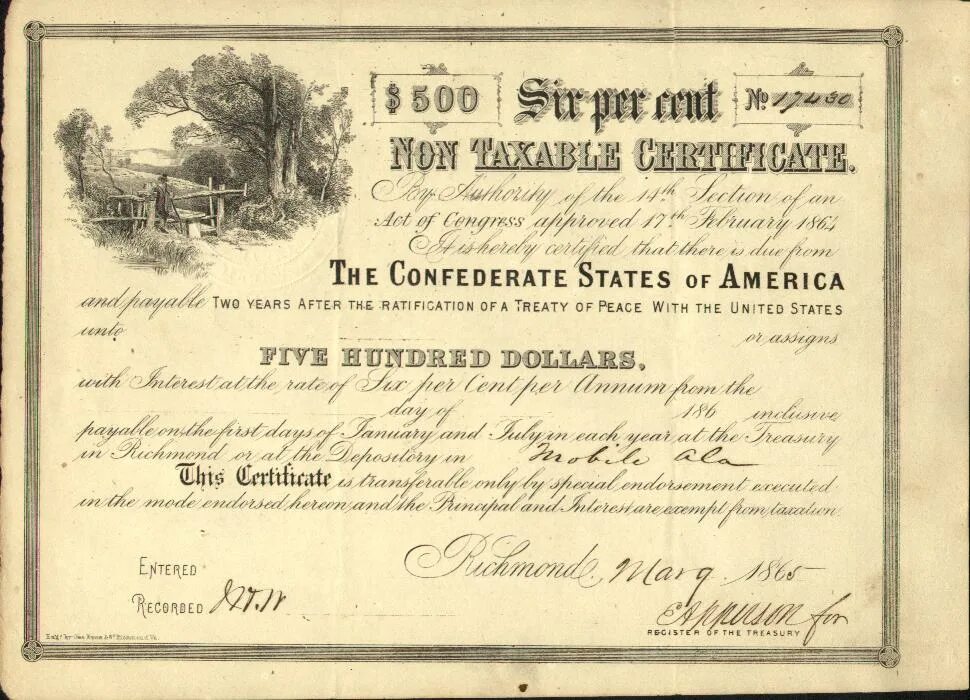 $500 Six per cent No 17430
NON TAXABLE CERTIFICATE.
By Authority of the 14th Section of an
Act of Congress approved 17th February 1864
It is hereby certified that there is due from
THE CONFEDERATE STATES OF AMERICA
and payable TWO YEARS AFTER THE RATIFICATION OF A TREATY OF PEACE WITH THE UNITED STATES
unto or assigns
FIVE HUNDRED DOLLARS,
with Interest at the rate of Six per Cent per Annum from the
day of 186 inclusive
payable on the first days of January and July in each year at the Treasury
in Richmond or at the Depository in Mobile Ala
This Certificate is transferable only by special endorsement executed
in the mode endorsed hereon, and the Principal and Interest are exempt from taxation.
Richmond, Mar 9 1865
ENTERED
RECORDED
Apperson for
REGISTER OF THE TREASURY